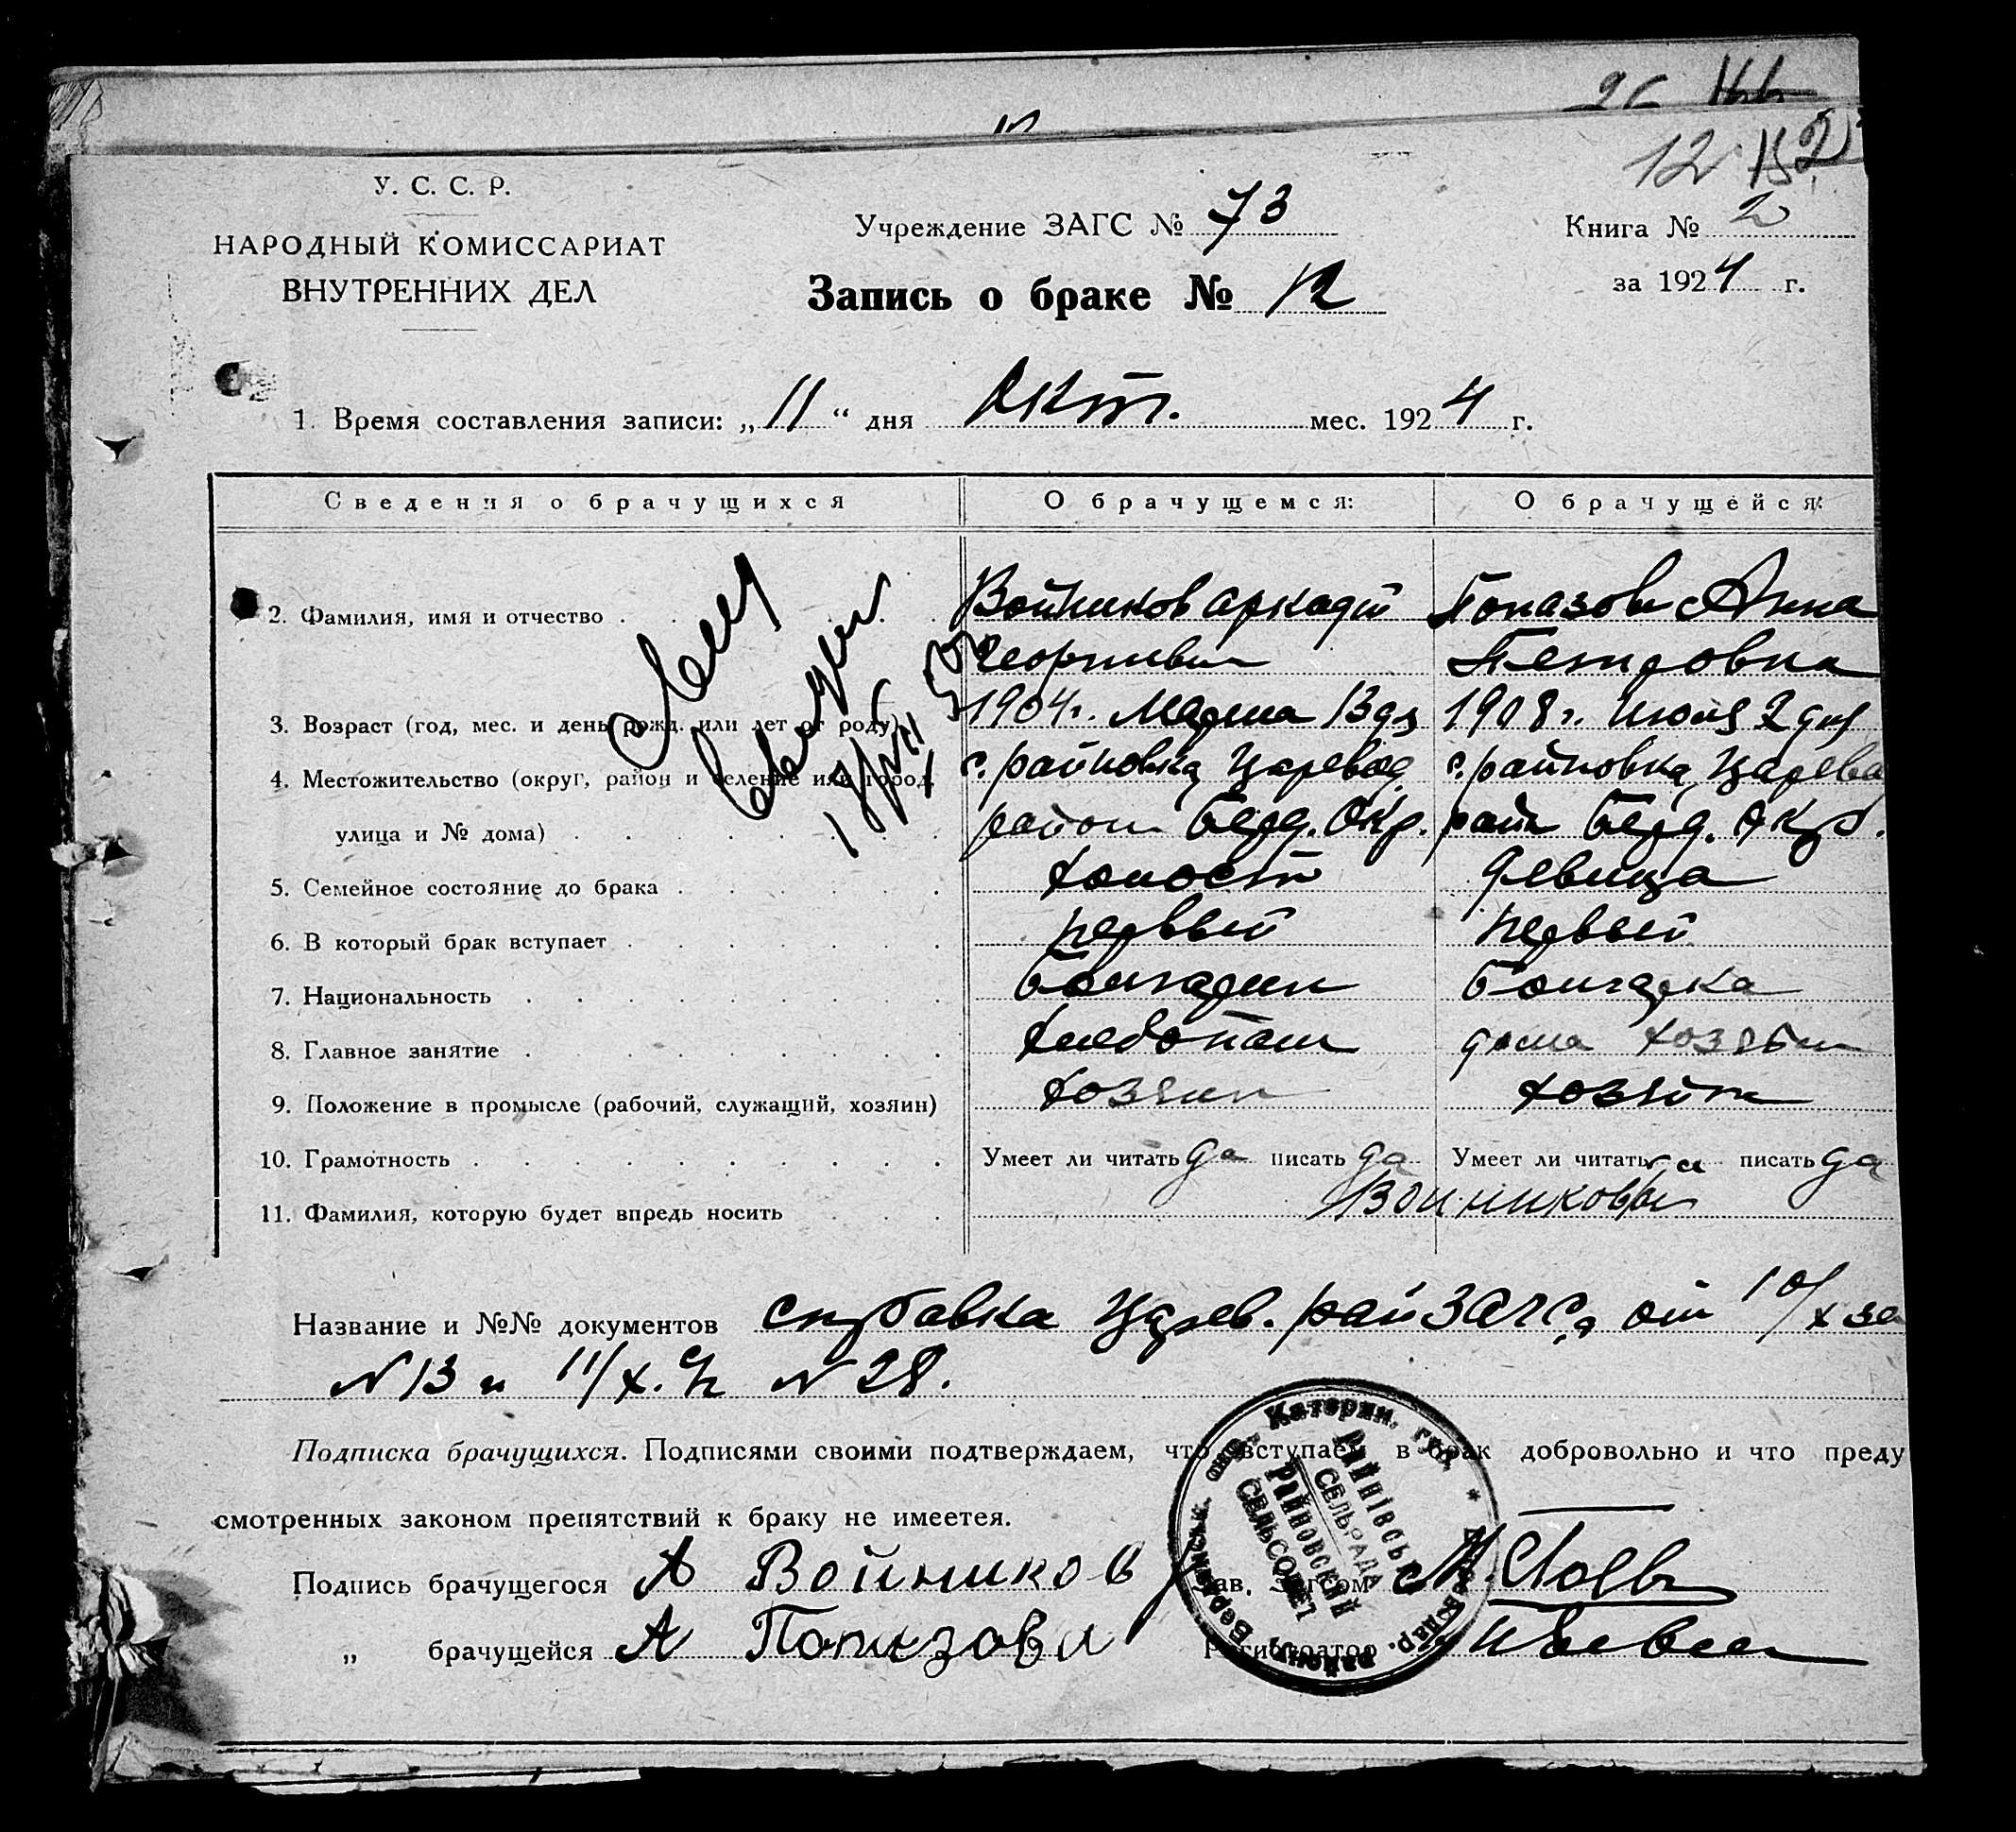 12
У. С. С. Р.
НАРОДНЫЙ КОМИССАРИАТ
ВНУТРЕННИХ ДЕЛ
Учреждение ЗАГС № 73
Книга № 2
Запись о браке № 12
за 1924 г.
1. Время составления записи: „11“ дня Окт. мес. 1924 г.
Сведения о брачущихся О брачущемся: О брачущейся:
2. Фамилия, имя и отчество Войников Аркадий Попазова Анна
Георгиевич Петровна
3. Возраст (год, мес. и день рожд. или лет от роду) 1904 г. Марта 13 дн 1908 г. Июля 2 дня
4. Местожительство (округ, район и селение или город, с. Райновка, Царевод. с. Райновка, Царево
улица и № дома) район Берд. Окр. райн Берд. Окр.
5. Семейное состояние до брака холост девица
6. В который брак вступает первый первый
7. Национальность Болгарин Болгарка
8. Главное занятие хлебопаш дома
9. Положение в промысле (рабочий, служащий, хозяин) хозяин
10. Грамотность Умеет ли читать да писать да Умеет ли читать да писать да
11. Фамилия, которую будет впредь носить Войниковы
Название и №№ документов справка Царев. рай ЗАГСа от 10/X за
N 13 и 11/X. N 28.
Подписка брачущихся. Подписями своими подтверждаем, что вступаем в брак добровольно и что преду
смотренных законом препятствий к браку не имеется.
Подпись брачущегося А Войников Зав. Загсом
„ брачущейся А Попазова Регистратор
Катерин. губ. * Бердянськ. окр.
Райнівська
СЕЛЬРАДА
Райновский
СЕЛЬСОВЕТ